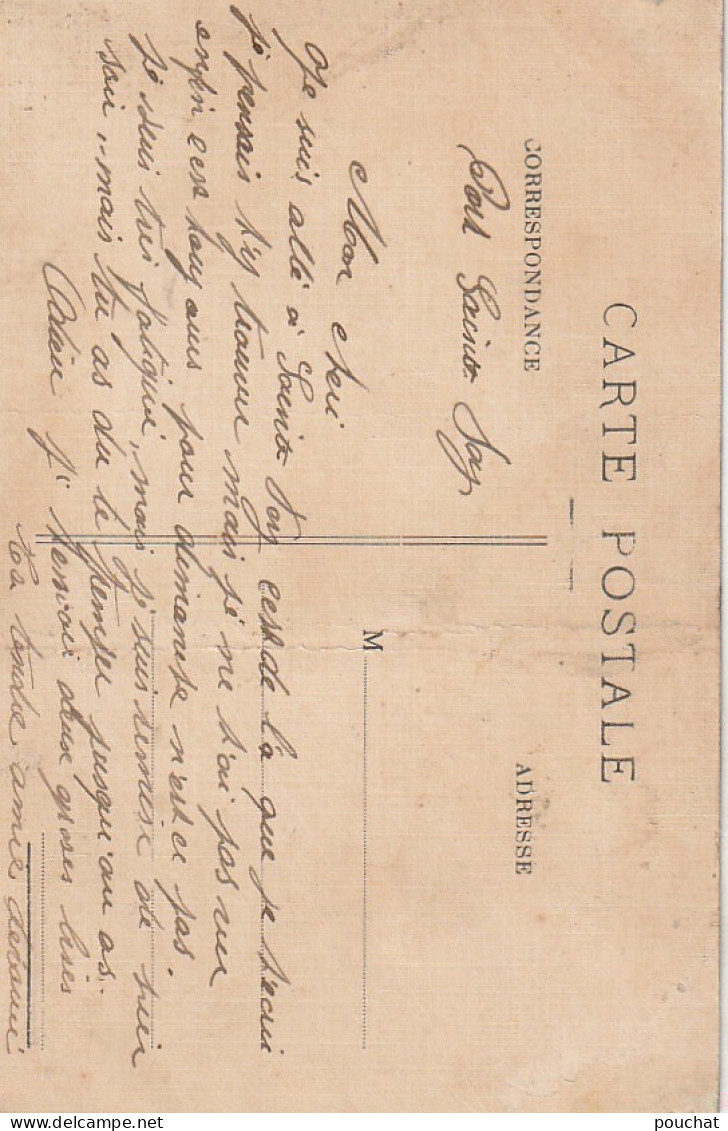 CARTE POSTALE
CORRESPONDANCE
ADRESSE
Port Sainte Foy
M
Mon cheri
Je suis allé à Sainte Foy cest de la que je t'ecri
je pensais t'y trouver mais je ne t'ai pas vue
enfin cest toujours pour dimanche n'est ce pas.
je suis tres fatigué, mais je suis remise de
soir, mais tu as du le penser jusqu'au os.
Adieu je t'envoi deux groses bises
ta tendre amie
pouchat